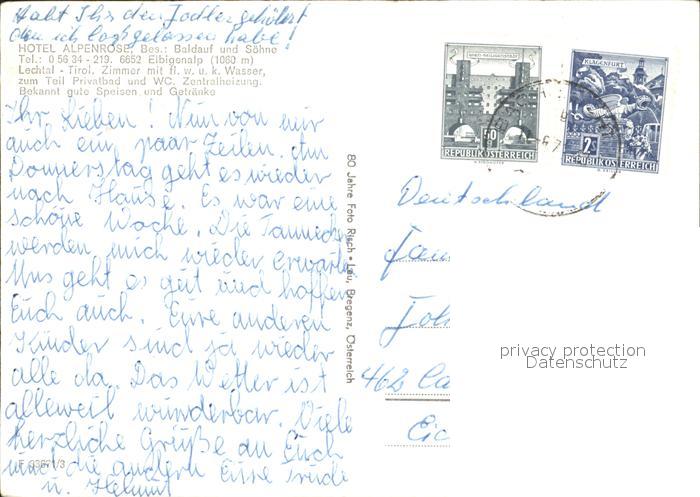 Habt Ihr den Jodler gehört
den ich losgelassen habe!
HOTEL ALPENROSE, Bes.: Baldauf und Söhne
Tel.: 0 56 34 - 219. 6652 Elbigenalp (1060 m)
Lechtal - Tirol. Zimmer mit fl. w. u. k. Wasser,
zum Teil Privatbad und WC. Zentralheizung.
Bekannt gute Speisen und Getränke
Ihr Lieben! Nun von mir
auch ein paar Zeilen. Am
Donnerstag geht es wieder
nach Hause. Es war eine
schöne Woche. Die
werden mich wieder erwarten
Uns geht es gut und hoffen
Euch auch. Eure anderen
Kinder sind ja wieder
alle da. Das Wetter ist
alleweil wunderbar. Viele
herzliche Grüße an Euch
und die andern Eure Trude
u. Helmut
F 93671/3
80 Jahre Foto Risch • Lau, Bregenz, Österreich
WIEN-HEILIGENSTADT
50
REPUBLIK ÖSTERREICH
KLAGENFURT
2S
REPUBLIK ÖSTERREICH
Deutschland
Fam
Joh
462 Ca
Eic
privacy protection
Datenschutz